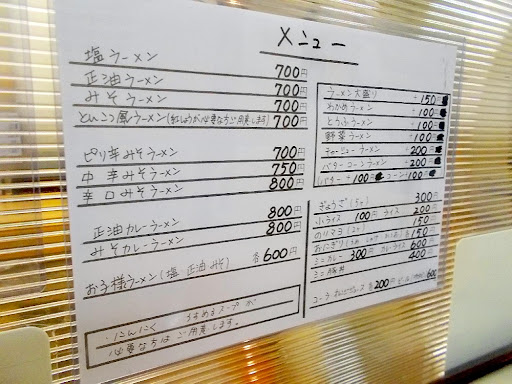 メニュー
塩ラーメン 700円
正油ラーメン 700円
みそラーメン 700円
とんこつ風ラーメン(紅しょうが必要な方ご用意します) 700円
ピリ辛みそラーメン 700円
中辛みそラーメン 750円
辛口みそラーメン 800円
正油カレーラーメン 800円
みそカレーラーメン 800円
お子様ラーメン(塩 正油 みそ) 各600円
・にんにく うすめるスープが
必要な方はご用意します。
ラーメン大盛り +150
わかめラーメン +100
とうふラーメン +100
野菜ラーメン +100
チャーシューラーメン +200
バターコーンラーメン +200
バター +100 コーン 100
ぎょうざ(5ヶ) 300円
小ライス 100円 ライス 200
のりマヨ(2ヶ) 150
おにぎり 各150
ミニカレー 300円 カレーライス 600
ミニ豚丼 400
コーラ 各200円 ビール 600